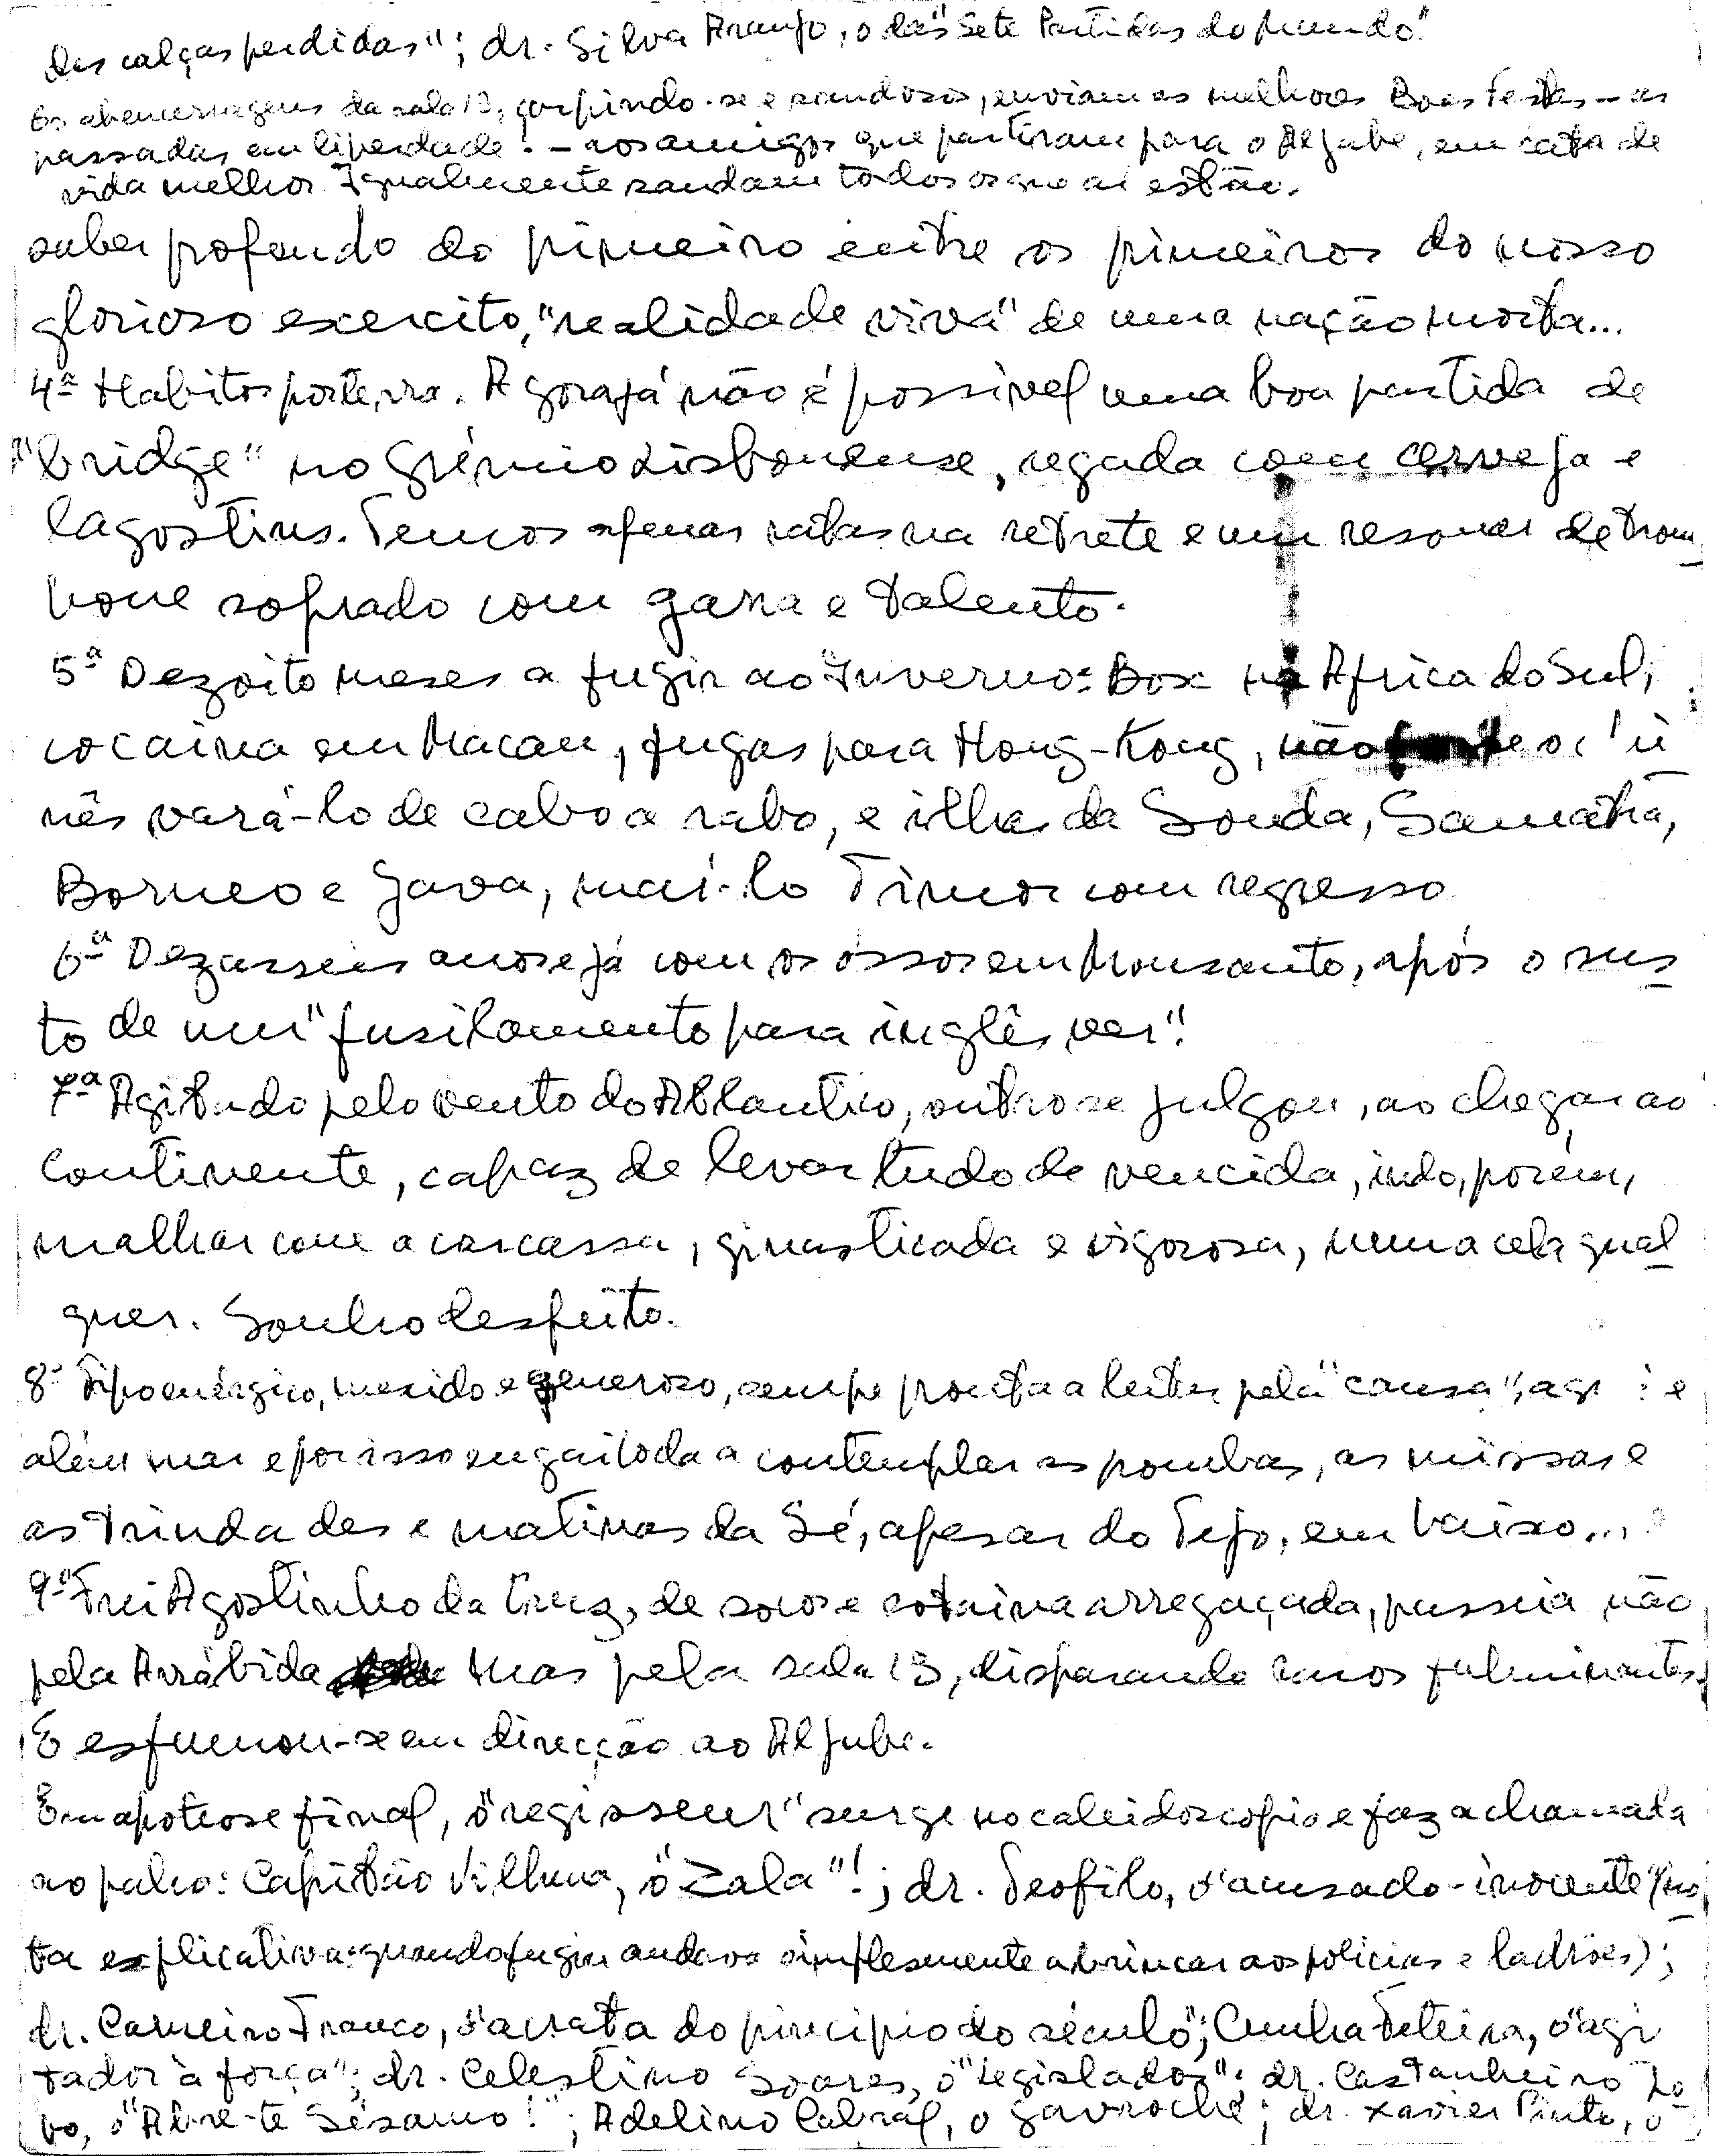 das calças perdidas"; dr. Silva Araujo, o das "Sete Partidas do Mundo."
Os abencerragens da sala 13, carpindo-se e saudosos, enviam as melhores Boas Festas – as
passadas em liberdade! – aos amigos que partiram para o Aljube, em cata de
vida melhor. Igualmente saudam todos os que aí estão.
saber profundo do primeiro entre os primeiros do nosso
glorioso exercito, "realidade viva" de uma nação morta...
4ª Habitos por terra. Agora já não é possivel uma boa partida de
"bridge" no Grémio Lisbonense, regada com cerveja e
lagostins. Temos apenas ratas na retrete e um resonar de trom_
bone soprado com garra e talento.
5ª Dezoito meses a fugir ao Inverno: Box na Africa do Sul,
cocaina em Macau, fugas para Hong-Kong, não
nês vará-lo de cabo a rabo, e ilhas da Sonda, Samatra,
Borneo e Java, mai-lo Timor com regresso
6ª Dezasseis anos e já com os ossos em Monsanto, após o sus_
to de um "fusilamento para inglês ver".
7ª Agitado pelo vento do Atlantico, outro se julgou, ao chegar ao
Continente, capaz de levar tudo de vencida, indo, porém,
malhar com a carcassa, ginasticada e vigorosa, numa cela qual_
quer. Sonho desfeito.
8ª Tipo enérgico, mexido e generoso, sempre pronta a pela "causa",
além mar e por isso engaiolada a contemplar as pombas, as missas e
as trindades e matinas da Sé, apesar do Tejo, em baixo...
9ª Frei Agostinho da Cruz, de socos e sotaina arregaçada, passeia não
pela Arrábida mas pela sala 13, disparando raios fulminantes.
E esfumou-se em direcção ao Aljube.
Em apoteose final, o "regisseur" surge no caleidoscopio e faz a chamada
ao palco: Capitão Vilhena, o "Zala"!; dr. Teofilo, o "acusado-inocente" (no_
ta explicativa: quando fugiu andava simplesmente a brincar aos policias e ladrões);
dr. Carneiro Franco, o "acrata do principio do século"; Cunha Teteira, o "agi
tador à força"; dr. Celestino Soares, o "legislador"; dr. Castanheiro Lo_
bo, o "Abre-te Sésamo!"; Adelino Cabral, o gavroche; dr. Xavier Pinto, o